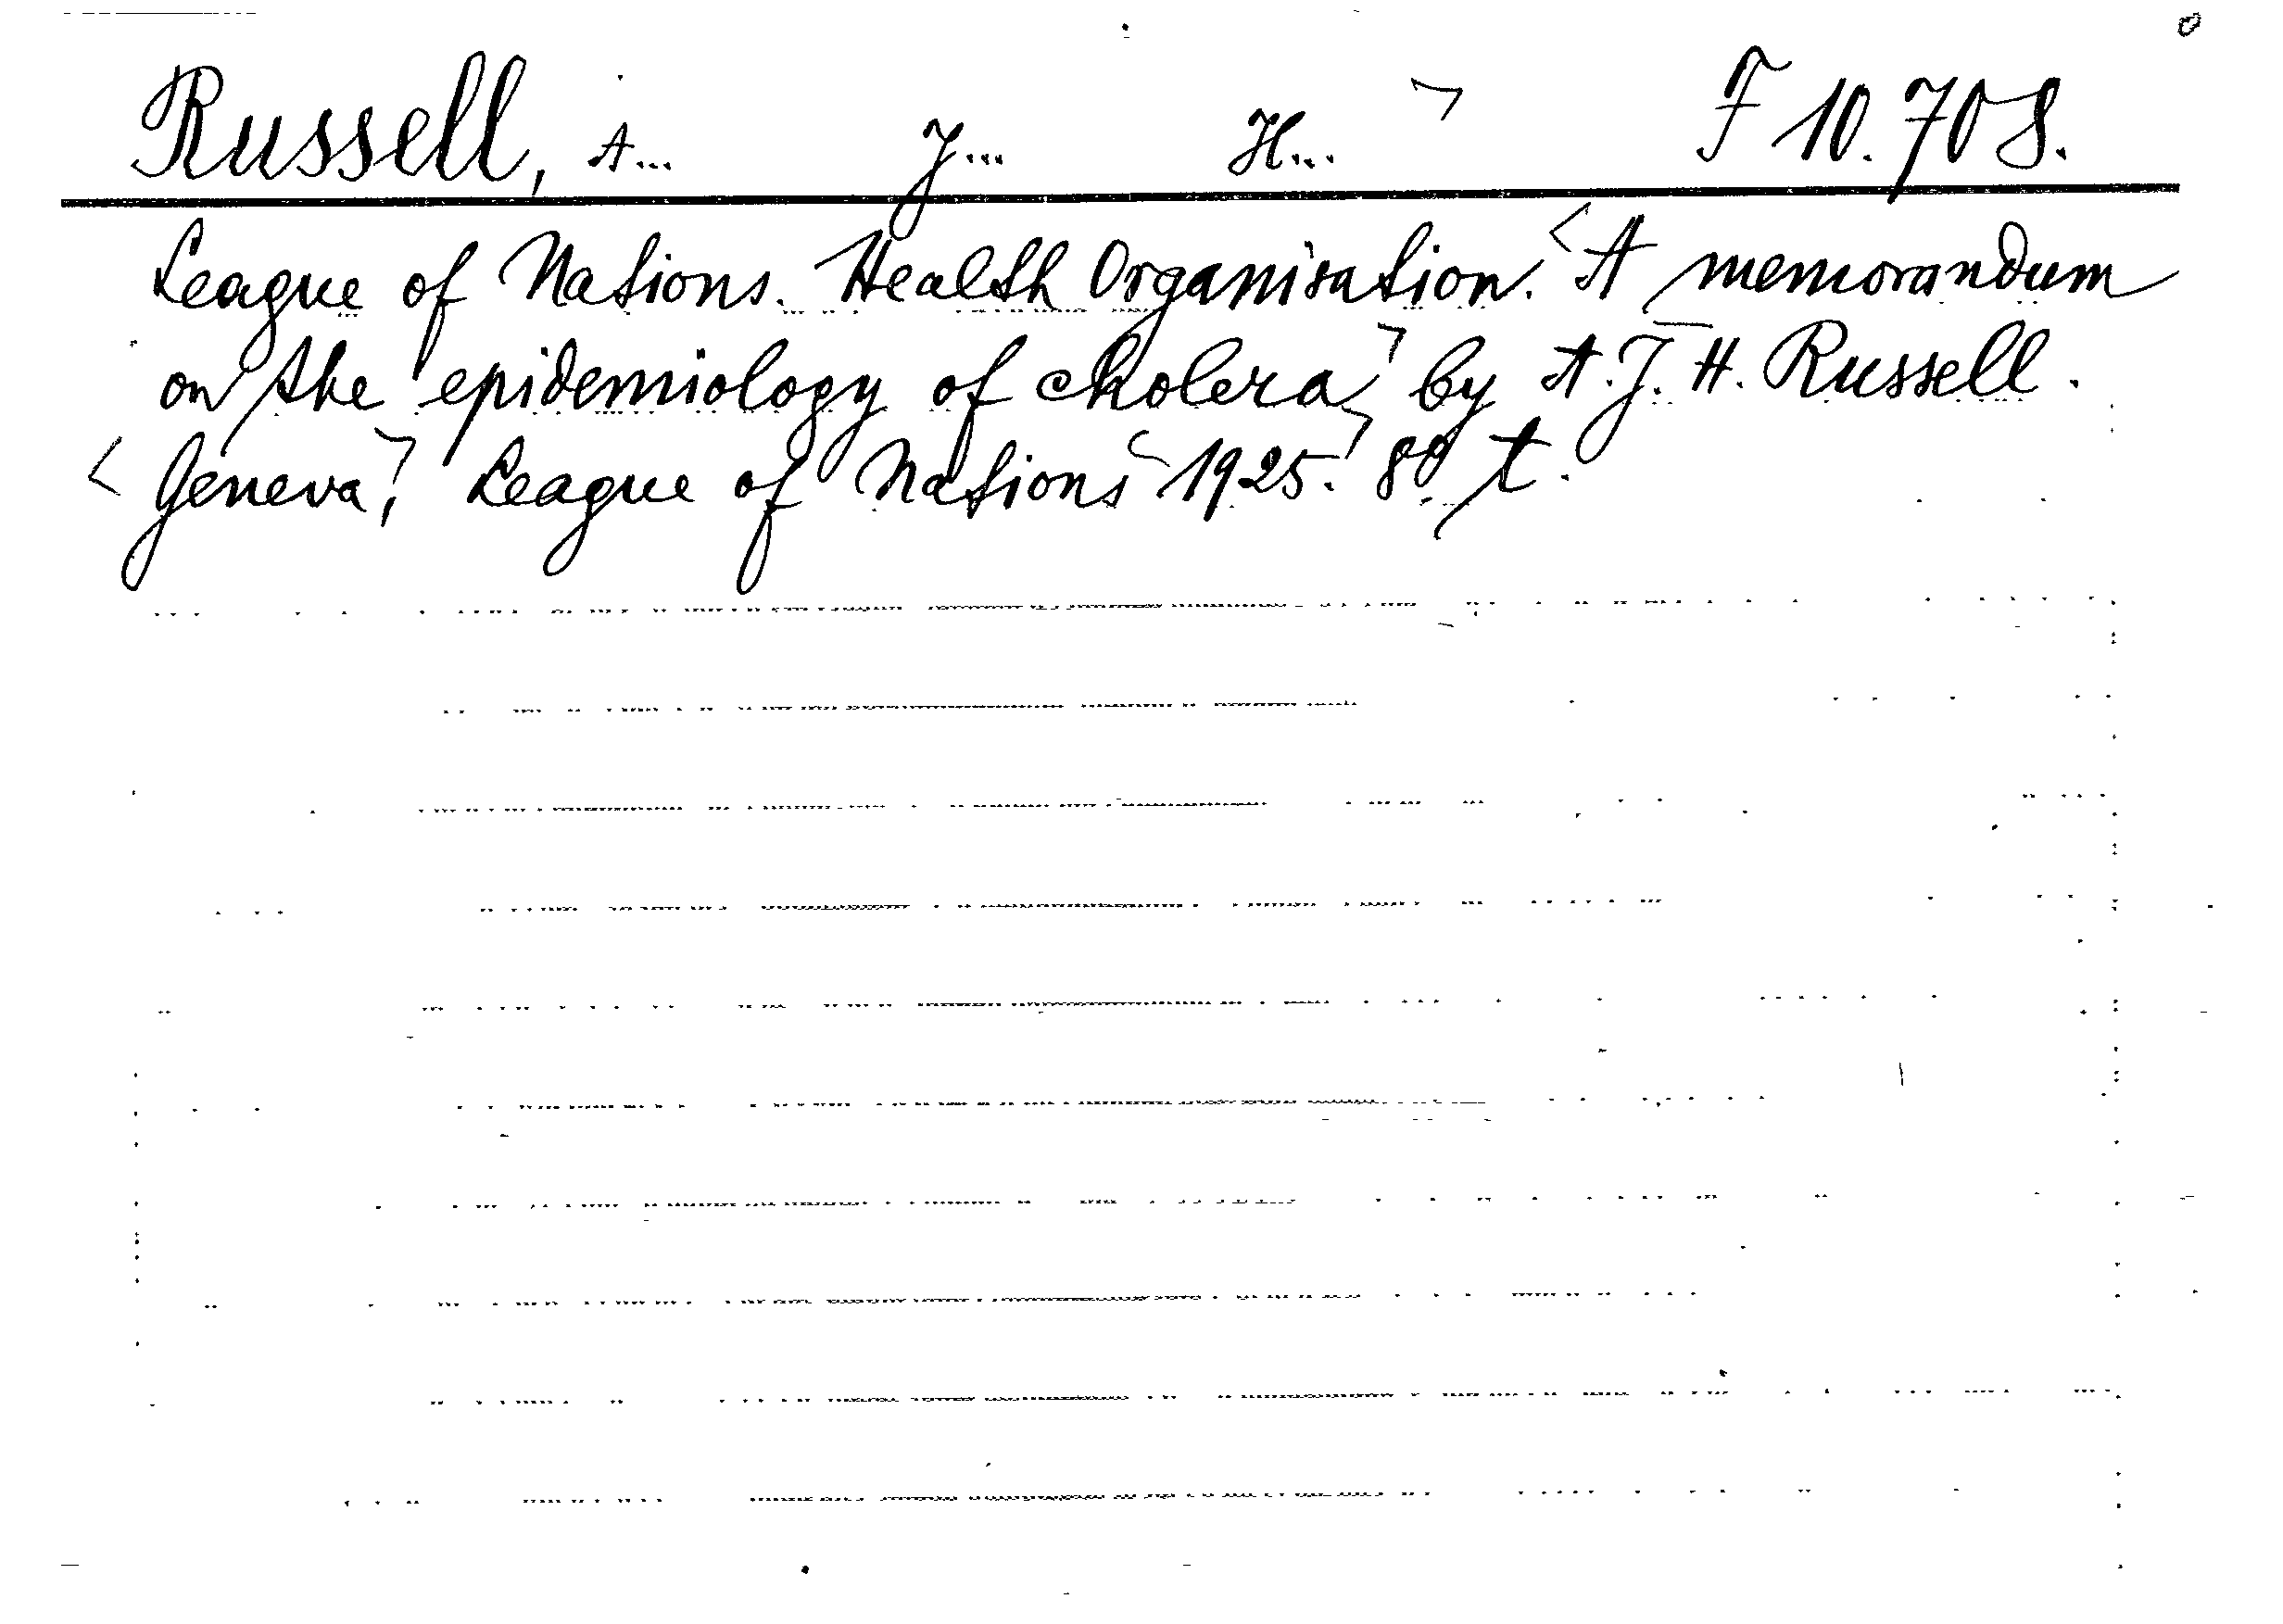 Russell, A... J... H... ¬ F 10.708.
League of Nations. Health Organisation. <A memorandum
on the epidemiology of cholera¬ by A. J. H. Russell.
<Geneva¬, League of Nations <1925.¬ 8º. t.